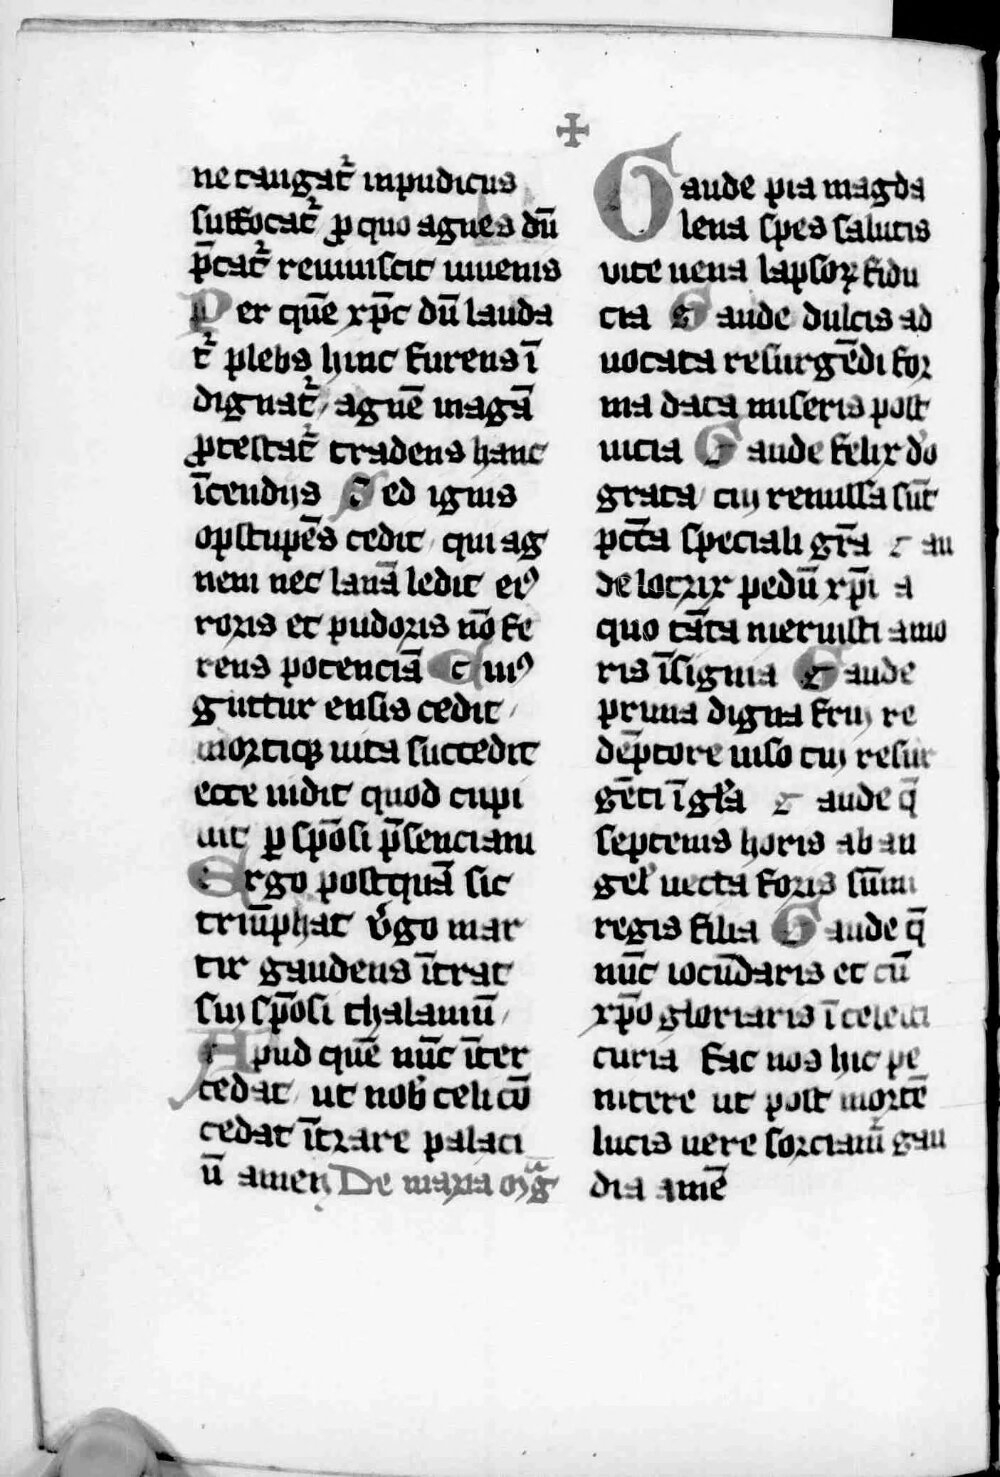 ✠
ne tangat᷑ inpudicus
suffocat᷑ ꝓ quo agnes dū
p̄cat᷑ reuiuiscit iuuenis
Per quē xp̄c dū lauda
t᷑ plebs hinc furens ī
dignat᷑ / agnē magā
ꝓtestat᷑ tradens hanc
īcendijs Sed ignis
opstupēs cedit / qui ag
nem nec lanā ledit eiꝰ
roris et pudoris nō fe
rens potenciā Cuiꝰ
guttur ensis cedit /
mortiqꝫ uita succedit
ecce uidit quod cupi
uit ꝑ sp̄osi p̄senciam
Ergo postquā sic
triūphat v̓go mar
tir gaudens ītrat
suj sp̄osi thalamū /
Apud quē nūc īter
cedat / ut nob̓ celicū
cedat ītrare palaci
ū amen De maria mag̅
Gaude pia magda
lena spes salutis
vite uena lapsoꝝ fidu
cia Gaude dulcis ad
uocata resurgēdi for
ma data miseris post
uicia Gaude felix do̓
grata / cuj remissa sūt
pctā speciali grā Gau
de lotrix pedū xp̄i a
quo tāta meruisti amo
ris īsignia Gaude
prima digna fruj re
dēptore uiso cuj resur
gēti ī gl̓a Gaude q̄
septenis horis ab an
gel̓ uecta foris sūmi
regis filia Gaude q̄
nūc iocūdaris et cū
xp̄o gloriaris ī celesti
curia Fac nos hic pe
nitere ut post mortē
lucis uere sorciam᷑ gau
dia amē